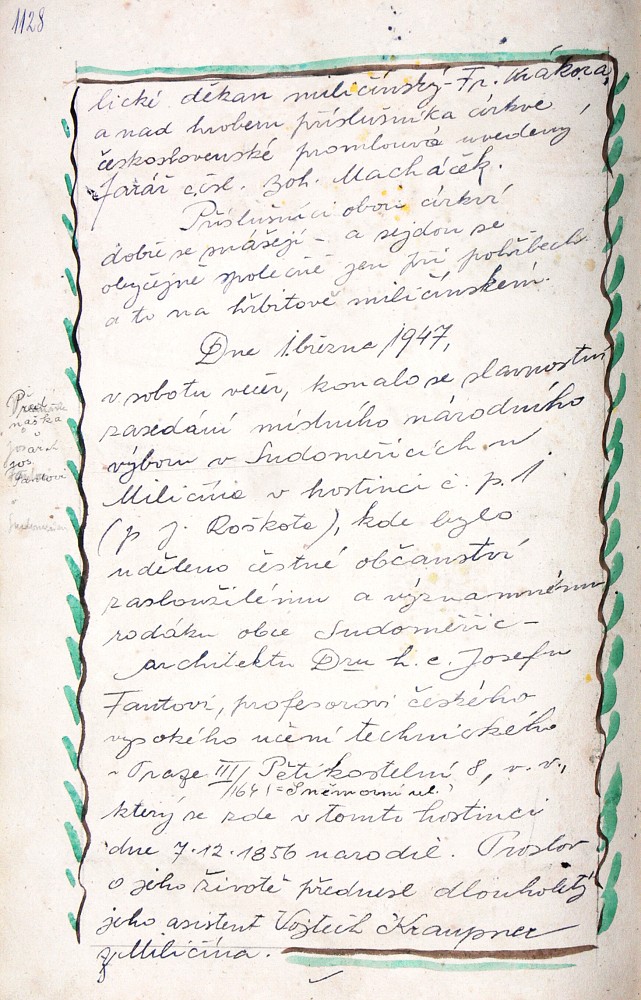 1128
lické děkan miličínský Fr. Kákora,
a nad hrobem příslušníka církve
československé promlouvá uvedený
farář čsl. boh. Macháček.
Příslušníci obou církví
dobře se snášejí - a sejdou se
obyčejně společně jen při pohřbech
a to na hřbitově miličínském.
Dne 1. března 1947,
v sobotu večer, konalo se slavnostní
zasedání místního národního
výboru v Sudoměřicích u
Miličína v hostinci č. p. 1
(p. J. Roškota), kde bylo
uděleno čestné občanství
zasloužilému a významnému
rodáku obce Sudoměřic -
architektu Dru h. c. Josefu
Fantovi, profesorovi českého
vysokého učení technického
v Praze III/ Pětikostelní 8, v. v.,
/164 = Sněmovní ul.
který se zde v tomto hostinci
dne 7.12.1856 narodil. Proslov
o jeho životě přednesl dlouholetý
jeho asistent Vojtěch Kraupner
z Miličína.
Před
náška
o
Jos.
Fantovi